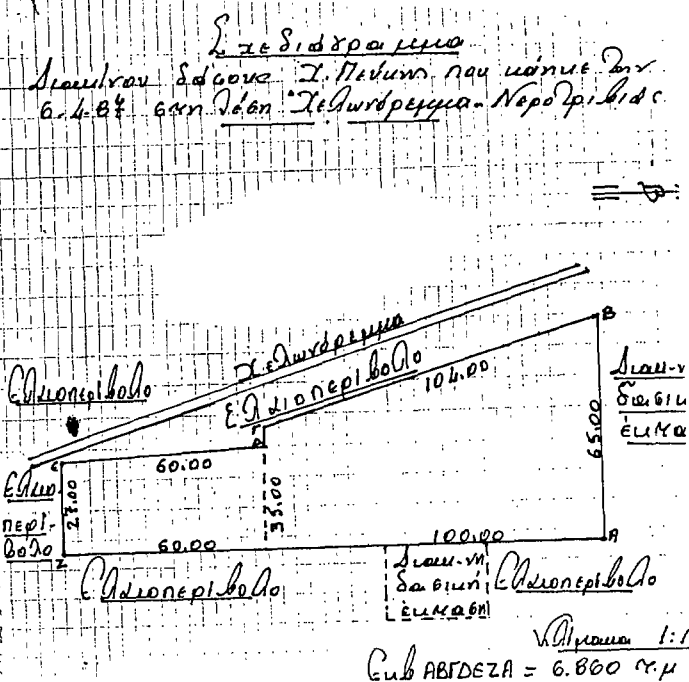 Σχεδιάγραμμα
Διακ/νου δάσους Χ. Πεύκης που κάηκε την
6.4.87 στη θέση "Χελωνόρεμμα- Νεροτριβιάς
Β
Χελωνόρεμμα
Ελαιοπερίβολο
104.00
Ελαιοπερίβολο
Διακ-ν
δασικ
έκτα
65.00
Γ
Δ
Ε
60.00
Ελαιο-
περί-
βολο
27.00
33.00
60.00
100.00
Α
Ζ
Ελαιοπερίβολο
Διακ-νη
δασική
έκταση
Ελαιοπερίβολο
Κλίμακα 1:1
Εμβ ΑΒΓΔΕΖΑ = 6.860 τ.μ